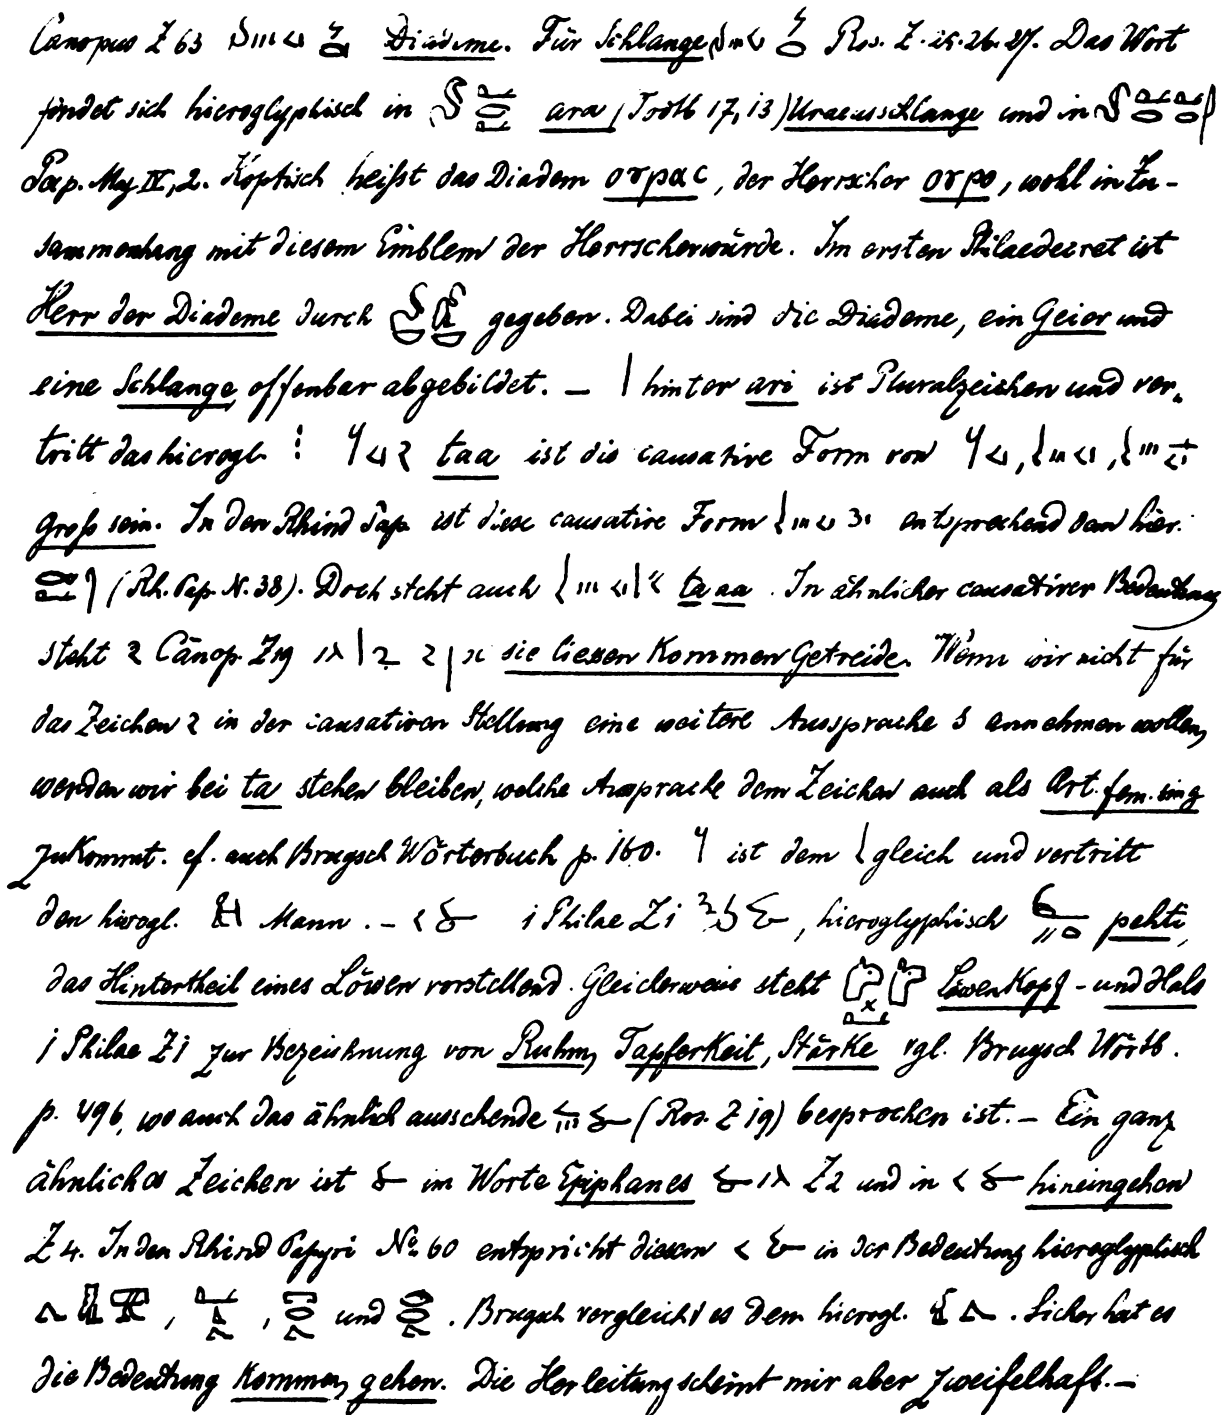 Canopus Z 63 Diademe. Für Schlange Ros. Z. 25. 26. 27. Das Wort
findet sich hieroglyphisch in ara (Todtb 17,13) Uraeusschlange und in
Pap. Mag IV, 2. Koptisch heißt das Diadem ⲟⲩⲣⲁⲥ, der Herrscher ⲟⲩⲣⲟ, wohl in Zu-
sammenhang mit diesem Emblem der Herrscherwürde. Im ersten Philaedecret ist
Herr der Diademe durch gegeben. Dabei sind die Diademe, ein Geier und
eine Schlange offenbar abgebildet. – hinter ari ist Pluralzeichen und ver-
tritt das hierogl. taa ist die causative Form von
groß sein. In den Rhind Pap. ist diese causative Form entsprechend dem hier.
(Rh. Pap. N. 38). Doch steht auch ta aa. In ähnlicher causativer Bedeutung
steht Canop. Z 19 sie liessen Kommen Getreide. Wenn wir nicht für
das Zeichen in der causativen Stellung eine weitere Aussprache s annehmen wollen,
werden wir bei ta stehen bleiben, welche Aussprache dem Zeichen auch als Art. fem. sing
zukommt. cf. auch Brugsch Wörterbuch p. 160. ist dem gleich und vertritt
den hierogl. Mann. – i Philae Z 1, hieroglyphisch pehti,
das Hintertheil eines Löwen vorstellend. Gleicherweise steht Löwenkopf - und Hals
i Philae Z 1 zur Bezeichnung von Ruhm, Tapferkeit, Stärke vgl. Brugsch Wörtb.
p. 496, wo auch das ähnlich aussehende (Ros. Z 19) besprochen ist. – Ein ganz
ähnliches Zeichen ist im Worte Epiphanes Z 2 und in hineingehen
Z 4. In den Rhind Papyri No. 60 entspricht diesem in der Bedeutung hieroglyphisch
, , und . Brugsch vergleicht es dem hierogl. . Sicher hat es
die Bedeutung Kommen, gehen. Die Herleitung scheint mir aber zweifelhaft. –